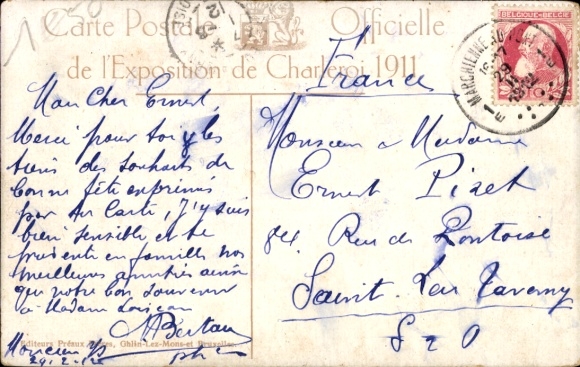 Carte Postale Officielle
de l'Exposition de Charleroi 1911
BELGIQUE-BELGIË
MARCHIENNE AU PONT
France
Mon Cher Ernest,
Merci pour toi et les
tiens des souhaits de
bonne fête exprimés
par ta Carte, J'y suis
bien sensible et te
présente en famille nos
meilleures amitiés ainsi
que notre bon souvenir
à Madame
Monsieur & Madame
Ernest Pizet
84 Rue de Pontoise
Saint-Leu Taverny
S & O
Editeurs Préaux Ghlin-Lez-Mons et Bruxelles.